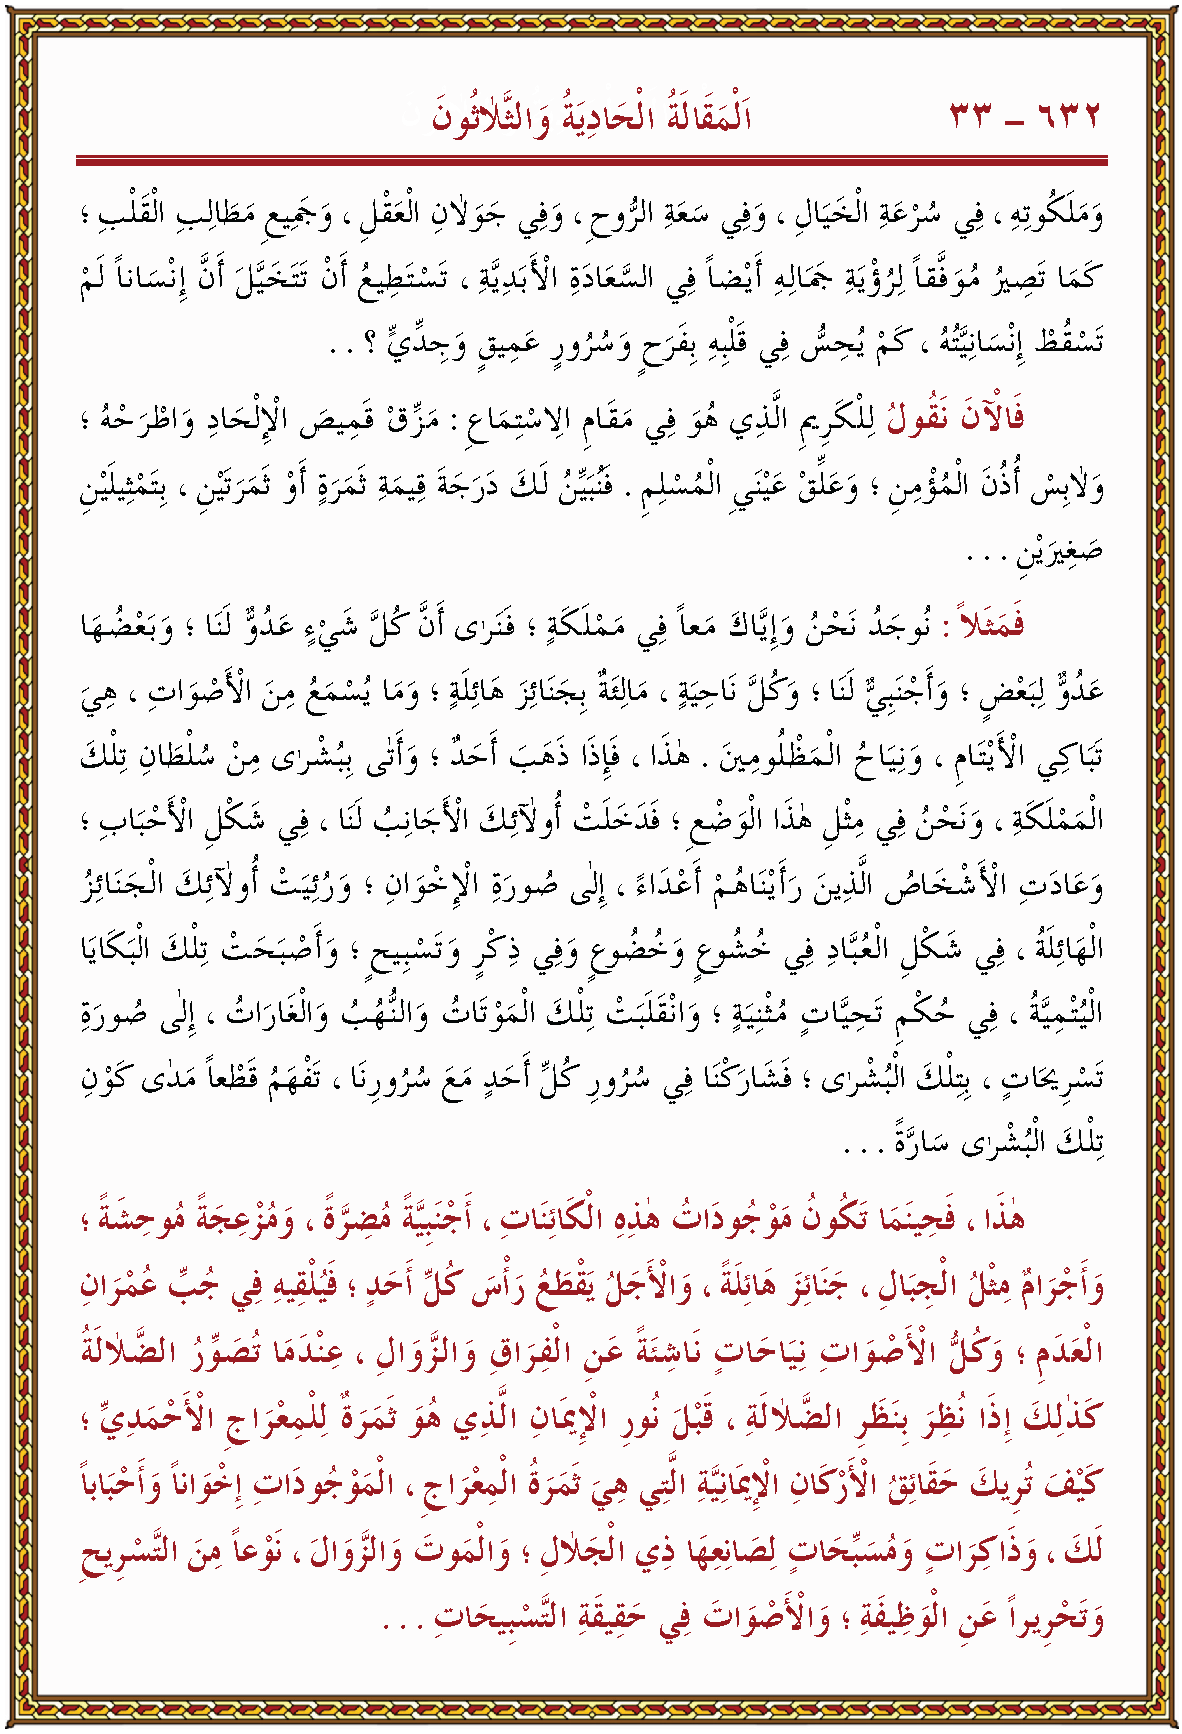 ٦٣٢ – ٣٣ اَلْمَقَالَةُ الْحَادِيَةُ وَالثَّلٰاثُونَ
وَمَلَكُوتِهِ ، فِي سُرْعَةِ الْخَيَالِ ، وَفِي سَعَةِ الرُّوحِ ، وَفِي جَوَلٰانِ الْعَقْلِ ، وَجَمِيعِ مَطَالِبِ الْقَلْبِ ؛
كَمَا تَصِيرُ مُوَفَّقاً لِرُؤْيَةِ جَمَالِهِ أَيْضاً فِي السَّعَادَةِ الْأَبَدِيَّةِ ، تَسْتَطِيعُ أَنْ تَتَخَيَّلَ أَنَّ إِنْسَاناً لَمْ
تَسْقُطْ إِنْسَانِيَّتُهُ ، كَمْ يُحِسُّ فِي قَلْبِهِ بِفَرَحٍ وَسُرُورٍ عَمِيقٍ وَجِدِّيٍّ ؟ . .
فَالْآنَ نَقُولُ لِلْكَرِيمِ الَّذِي هُوَ فِي مَقَامِ الِاسْتِمَاعِ : مَزِّقْ قَمِيصَ الْإِلْحَادِ وَاطْرَحْهُ ؛
وَلٰابِسْ أُذُنَ الْمُؤْمِنِ ؛ وَعَلِّقْ عَيْنَيِ الْمُسْلِمِ . فَنُبَيِّنُ لَكَ دَرَجَةَ قِيمَةِ ثَمَرَةٍ أَوْ ثَمَرَتَيْنِ ، بِتَمْثِيلَيْنِ
صَغِيرَيْنِ . . .
فَمَثَلاً : نُوجَدُ نَحْنُ وَإِيَّاكَ مَعاً فِي مَمْلَكَةٍ ؛ فَنَرٰى أَنَّ كُلَّ شَيْءٍ عَدُوٌّ لَنَا ؛ وَبَعْضُهَا
عَدُوٌّ لِبَعْضٍ ؛ وَأَجْنَبِيٌّ لَنَا ؛ وَكُلَّ نَاحِيَةٍ ، مَالِئَةٌ بِجَنَائِزَ هَائِلَةٍ ؛ وَمَا يُسْمَعُ مِنَ الْأَصْوَاتِ ، هِيَ
تَبَاكِي الْأَيْتَامِ ، وَنِيَاحُ الْمَظْلُومِينَ . هٰذَا ، فَإِذَا ذَهَبَ أَحَدٌ ؛ وَأَتٰى بِبُشْرٰى مِنْ سُلْطَانِ تِلْكَ
الْمَمْلَكَةِ ، وَنَحْنُ فِي مِثْلِ هٰذَا الْوَضْعِ ؛ فَدَخَلَتْ أُولٰآئِكَ الْأَجَانِبُ لَنَا ، فِي شَكْلِ الْأَحْبَابِ ؛
وَعَادَتِ الْأَشْخَاصُ الَّذِينَ رَأَيْنَاهُمْ أَعْدَاءً ، إِلٰى صُورَةِ الْإِخْوَانِ ؛ وَرُئِيَتْ أُولٰآئِكَ الْجَنَائِزُ
الْهَائِلَةُ ، فِي شَكْلِ الْعُبَّادِ فِي خُشُوعٍ وَخُضُوعٍ وَفِي ذِكْرٍ وَتَسْبِيحٍ ؛ وَأَصْبَحَتْ تِلْكَ الْبَكَايَا
الْيُتْمِيَّةُ ، فِي حُكْمِ تَحِيَّاتٍ مُثْنِيَةٍ ؛ وَانْقَلَبَتْ تِلْكَ الْمَوْتَاتُ وَالنُّهُبُ وَالْغَارَاتُ ، إِلٰى صُورَةِ
تَسْرِيحَاتٍ ، بِتِلْكَ الْبُشْرٰى ؛ فَشَارَكْنَا فِي سُرُورِ كُلِّ أَحَدٍ مَعَ سُرُورِنَا ، تَفْهَمُ قَطْعاً مَدٰى كَوْنِ
تِلْكَ الْبُشْرٰى سَارَّةً . . .
هٰذَا ، فَحِينَمَا تَكُونُ مَوْجُودَاتُ هٰذِهِ الْكَائِنَاتِ ، أَجْنَبِيَّةً مُضِرَّةً ، وَمُزْعِجَةً مُوحِشَةً ؛
وَأَجْرَامٌ مِثْلُ الْجِبَالِ ، جَنَائِزَ هَائِلَةً ، وَالْأَجَلُ يَقْطَعُ رَأْسَ كُلِّ أَحَدٍ ؛ فَيُلْقِيهِ فِي جُبِّ عُمْرَانِ
الْعَدَمِ ؛ وَكُلُّ الْأَصْوَاتِ نِيَاحَاتٍ نَاشِئَةً عَنِ الْفِرَاقِ وَالزَّوَالِ ، عِنْدَمَا تُصَوِّرُ الضَّلٰالَةُ
كَذٰلِكَ إِذَا نُظِرَ بِنَظَرِ الضَّلٰالَةِ ، قَبْلَ نُورِ الْإِيمَانِ الَّذِي هُوَ ثَمَرَةٌ لِلْمِعْرَاجِ الْأَحْمَدِيِّ ؛
كَيْفَ تُرِيكَ حَقَائِقُ الْأَرْكَانِ الْإِيمَانِيَّةِ الَّتِي هِيَ ثَمَرَةُ الْمِعْرَاجِ ، الْمَوْجُودَاتِ إِخْوَاناً وَأَحْبَاباً
لَكَ ، وَذَاكِرَاتٍ وَمُسَبِّحَاتٍ لِصَانِعِهَا ذِي الْجَلٰالِ ؛ وَالْمَوْتَ وَالزَّوَالَ ، نَوْعاً مِنَ التَّسْرِيحِ
وَتَحْرِيراً عَنِ الْوَظِيفَةِ ؛ وَالْأَصْوَاتَ فِي حَقِيقَةِ التَّسْبِيحَاتِ . . .